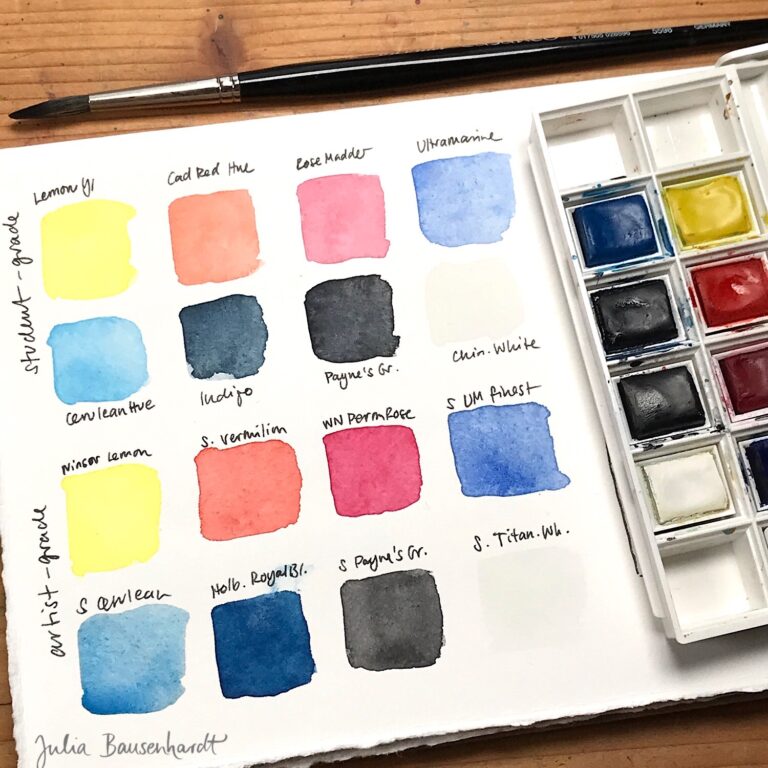 GERMANY
5598
student-grade
Lemon Yl
Cad Red Hue
Rose Madder
Ultramarine
Cerulean Hue
Indigo
Payne's Gr.
Chin. White
artist-grade
Winsor Lemon
S. Vermilion
WN Perm Rose
S UM finest
S Cerulean
Holb. Royal Bl.
S Payne's Gr.
S. Titan. Wh.
Julia Bausenhardt